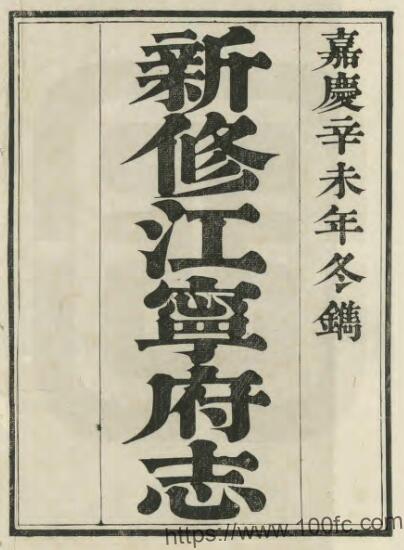 嘉慶辛未年冬鐫
新修江寧府志
https://www.100fc.com